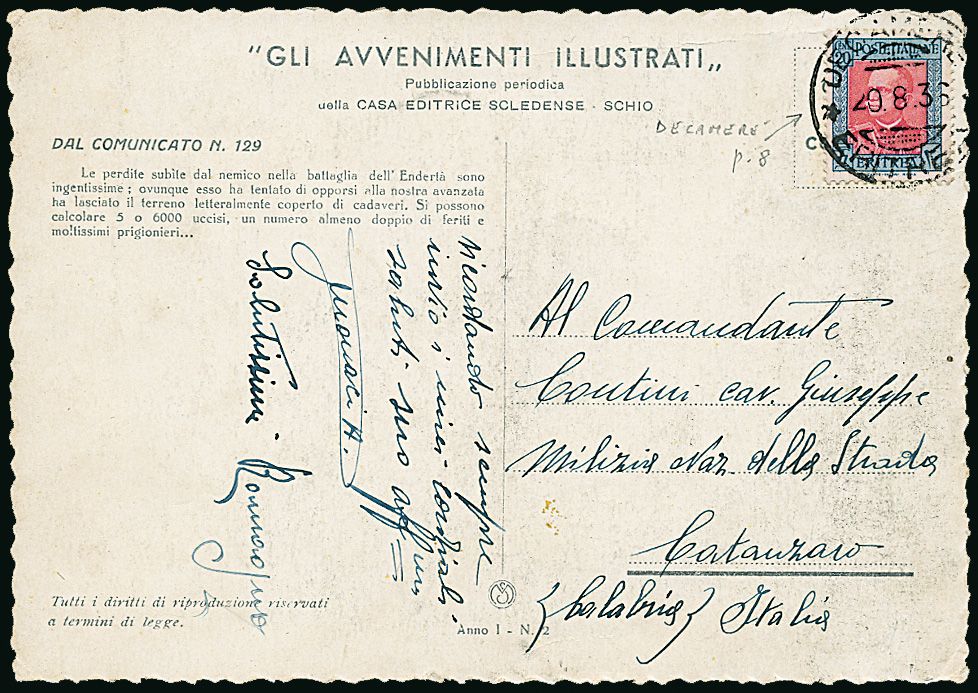 "GLI AVVENIMENTI ILLUSTRATI„
Pubblicazione periodica
della CASA EDITRICE SCLEDENSE - SCHIO
DAL COMUNICATO N. 129
Le perdite subite dal nemico nella battaglia dell' Endertà sono
ingentissime ; ovunque esso ha tentato di opporsi alla nostra avanzata
ha lasciato il terreno letteralmente coperto di cadaveri. Si possono
calcolare 5 o 6000 uccisi, un numero almeno doppio di feriti e
moltissimi prigionieri...
DECAMERE
p. 8
CENT 20 POSTE ITALIANE
ERITREA
DECAMERE
20.8.36
ERITREA
Ricordando sempre
invio i miei cordiali
saluti suo aff
Salutissimi
Romagno
Al Comandante
Contini cav. Giuseppe
Milizia Naz. della Strada
Catanzaro
{Calabria} Italia
Tutti i diritti di riproduzione riservati
a termini di legge.
Anno I - N. 2